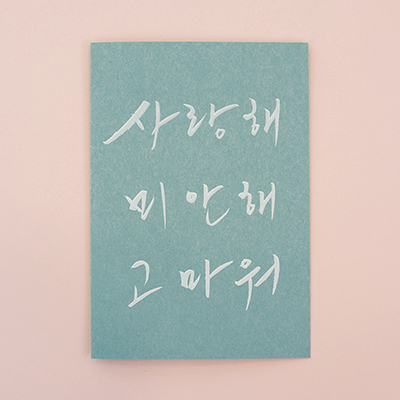 사랑해
미안해
고마워